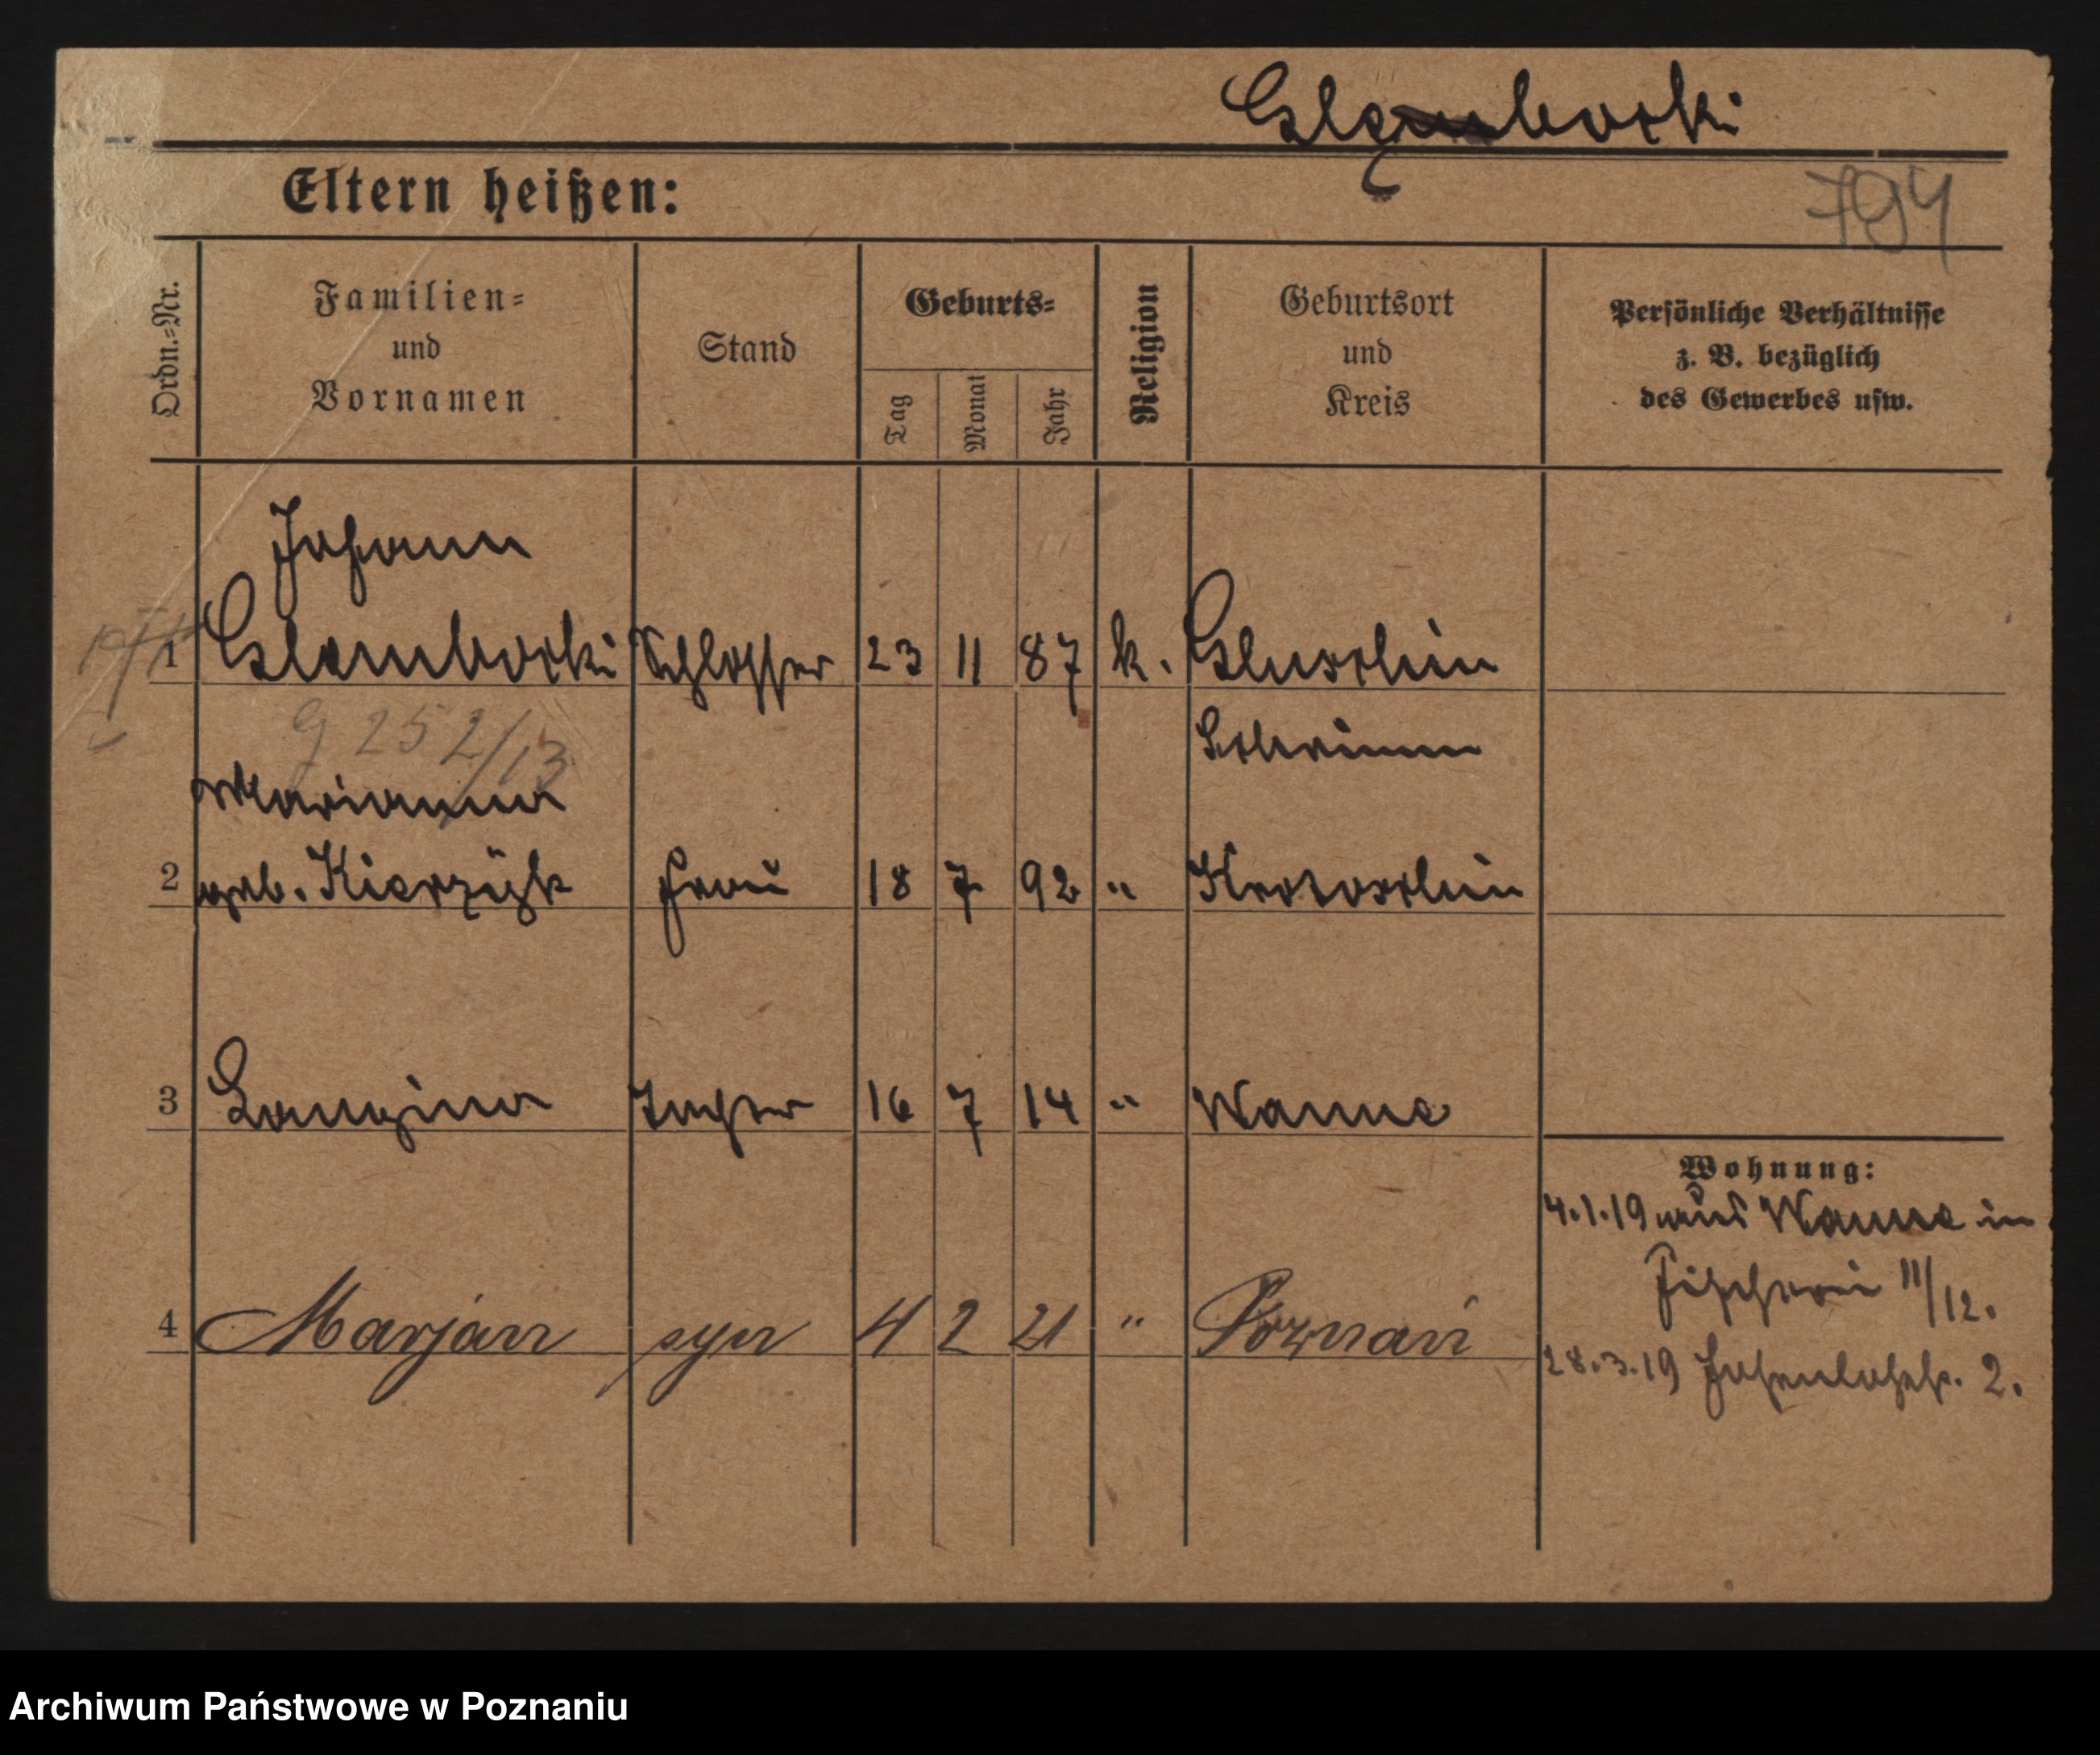 Glembocki
Eltern heißen:
794
Ordn.=Nr.
Familien=
und
Vornamen
Stand
Geburts=
Tag
Monat
Jahr
Religion
Geburtsort
und
Kreis
Persönliche Verhältnisse
z. B. bezüglich
des Gewerbes usw.
Johann
1 Glembocki Schlosser 23 11 87 k. Gluschin
G 252/13
Schrimm
Marianna
2 geb. Kierzyk Frau 18 7 92 " Krotoschin
3 Longina Tochter 16 7 14 " Wanne
Wohnung:
4.1.19 aus Wanne in
Fischerei 11/12.
4 Marjan syn 4 2 21 " Poznań
28.3.19 Hohenlohestr. 2.
Archiwum Państwowe w Poznaniu